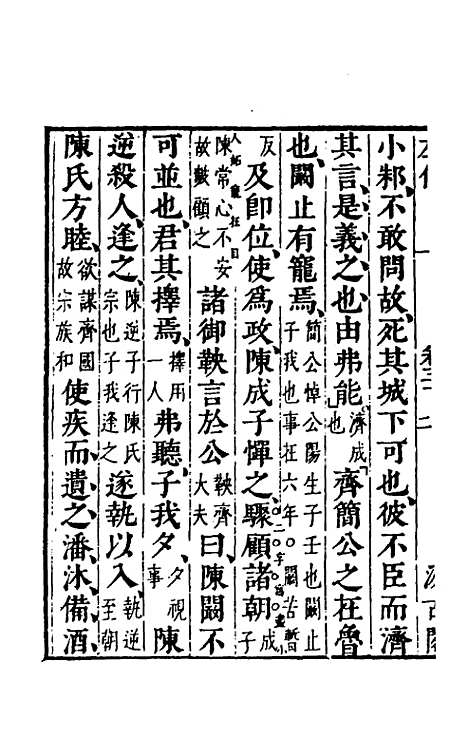 小邾不敢問故死其城下可也彼不臣而濟
其言是義之也由弗能濟成也齊簡公之在魯
也闞止有寵焉簡公悼公陽生子壬也闞止子我也事在六年闞苦暫
反及卽位使爲政陳成子憚之驟顧諸朝成子
陳常心不安故數顧之諸御鞅言於公鞅齊大夫曰陳闞不
可並也君其擇焉擇用一人弗聽子我夕夕視事陳
逆殺人逢之陳逆子行陳氏宗也子我逢之遂執以入執逆至朝
陳氏方睦欲謀齊國故宗族和使疾而遺之潘沐備酒